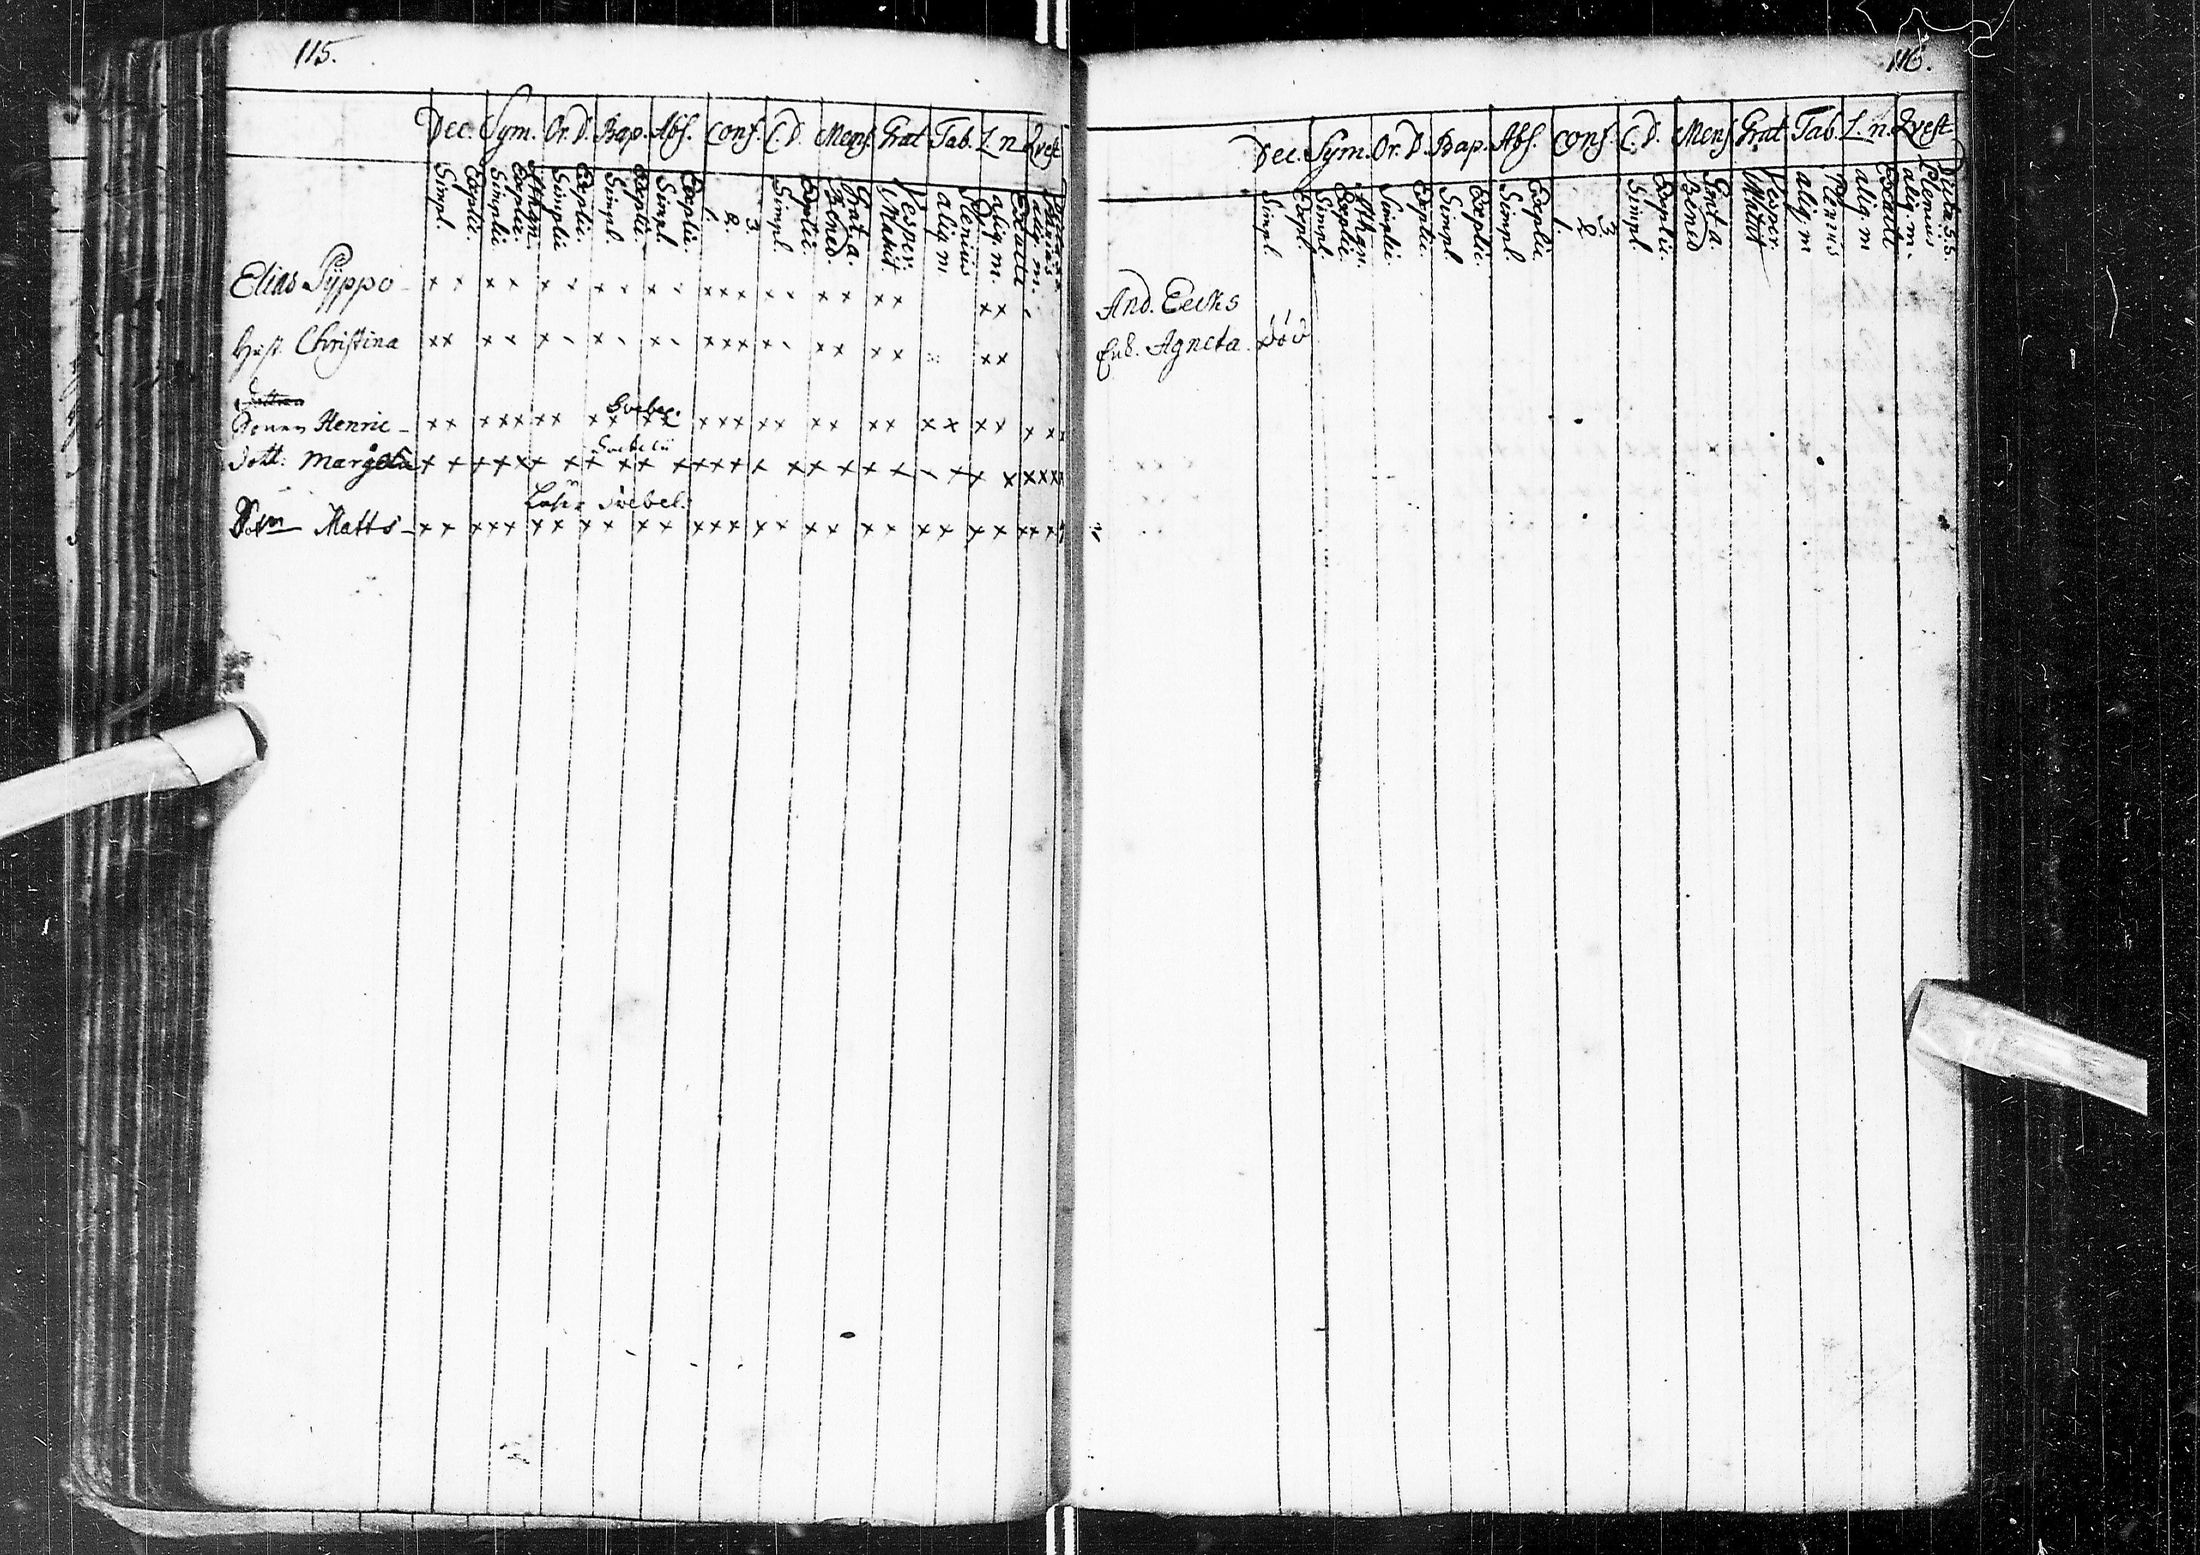 115.
Dec. Sym. Or. D. Bap. Abs. Conf. C. D. Mens. Grat Tab. L. n. Qvest
Simpl. Explic. Simplic. Explic. Athan. Simplic Explic. Simpl. Explic. Simpl. Explic. 1. 2. 3 Simpl. Explic. Bened. Grat a. Matut. Vesper. aliq m Plenius aliq. m. Exacte aliq. m. Plenius
Elias Pÿppo - x x x x x x x x x x x x x x x x x x
Hust. Christina x x x x x x x x x x x x x x x x x x
Svebel.
Sonen Henric - x x x x x x x x x x x x x x x x x x x x x x x x x x
Svebelii
Dott: Margeta x x x x x x x x x x x x x x x x x x x x x x x x x x
Svebel.
Son Matts - x x x x x x x x x x x x x x x x x x x x x x x x x x
116.
Dec. Sym. Or. D. Bap. Abs. Conf. C. D. Mens Grat Tab. L. n. Qvest
Simpl. Expl. Simpl. Explic. Athan. Simplic. Explic Simpl. Explic. Simpl Explic 1 2 3 Simpl. Explic. Bened Grat a. Matut Vesper. aliq m Plenius aliq m Exacte aliq. m. Plenius
And. Eeriks
Enk. Agneta. död